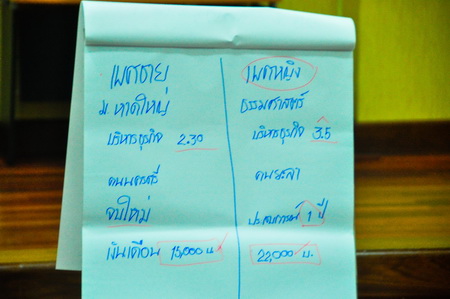 เพศชาย
ม. หาดใหญ่
บริหารธุรกิจ 2.30
จบใหม่
เงินเดือน 15,000 บ.
เพศหญิง
ธรรมศาสตร์
บริหารธุรกิจ 3.5
คนยะลา
ประสบการณ์ 1 ปี
22,000 บ.